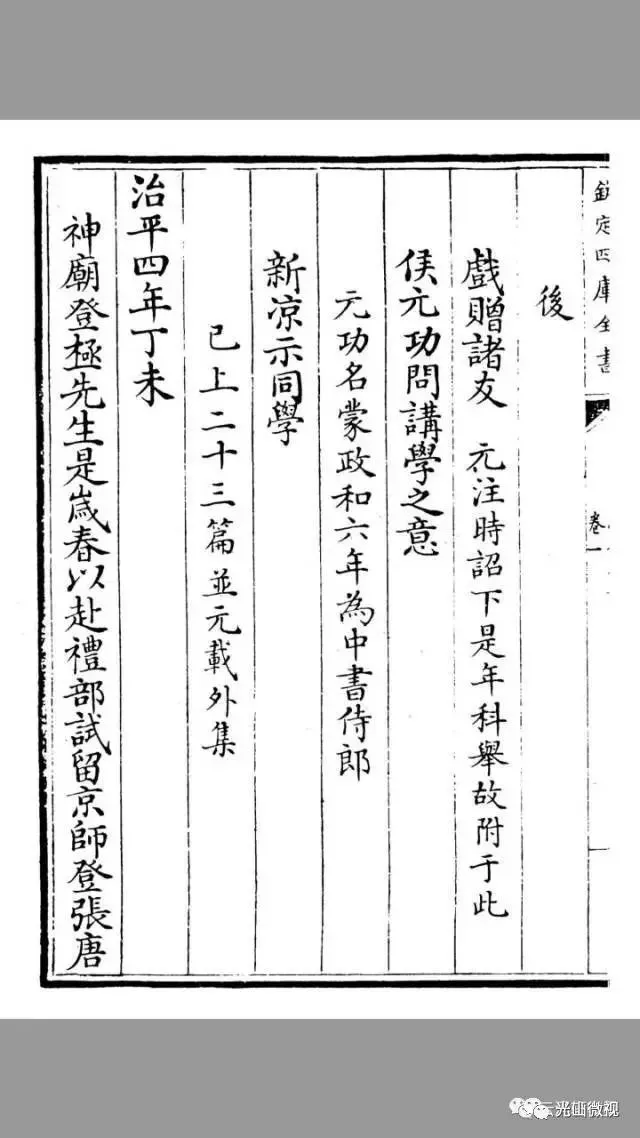 欽定四庫全書
卷一
後
戲贈諸友 元注時詔下是年科舉故附于此
侯元功問講學之意
元功名蒙政和六年為中書侍郎
新凉示同學
已上二十三篇並元載外集
治平四年丁未
神廟登極先生是歲春以赴禮部試留京師登張唐